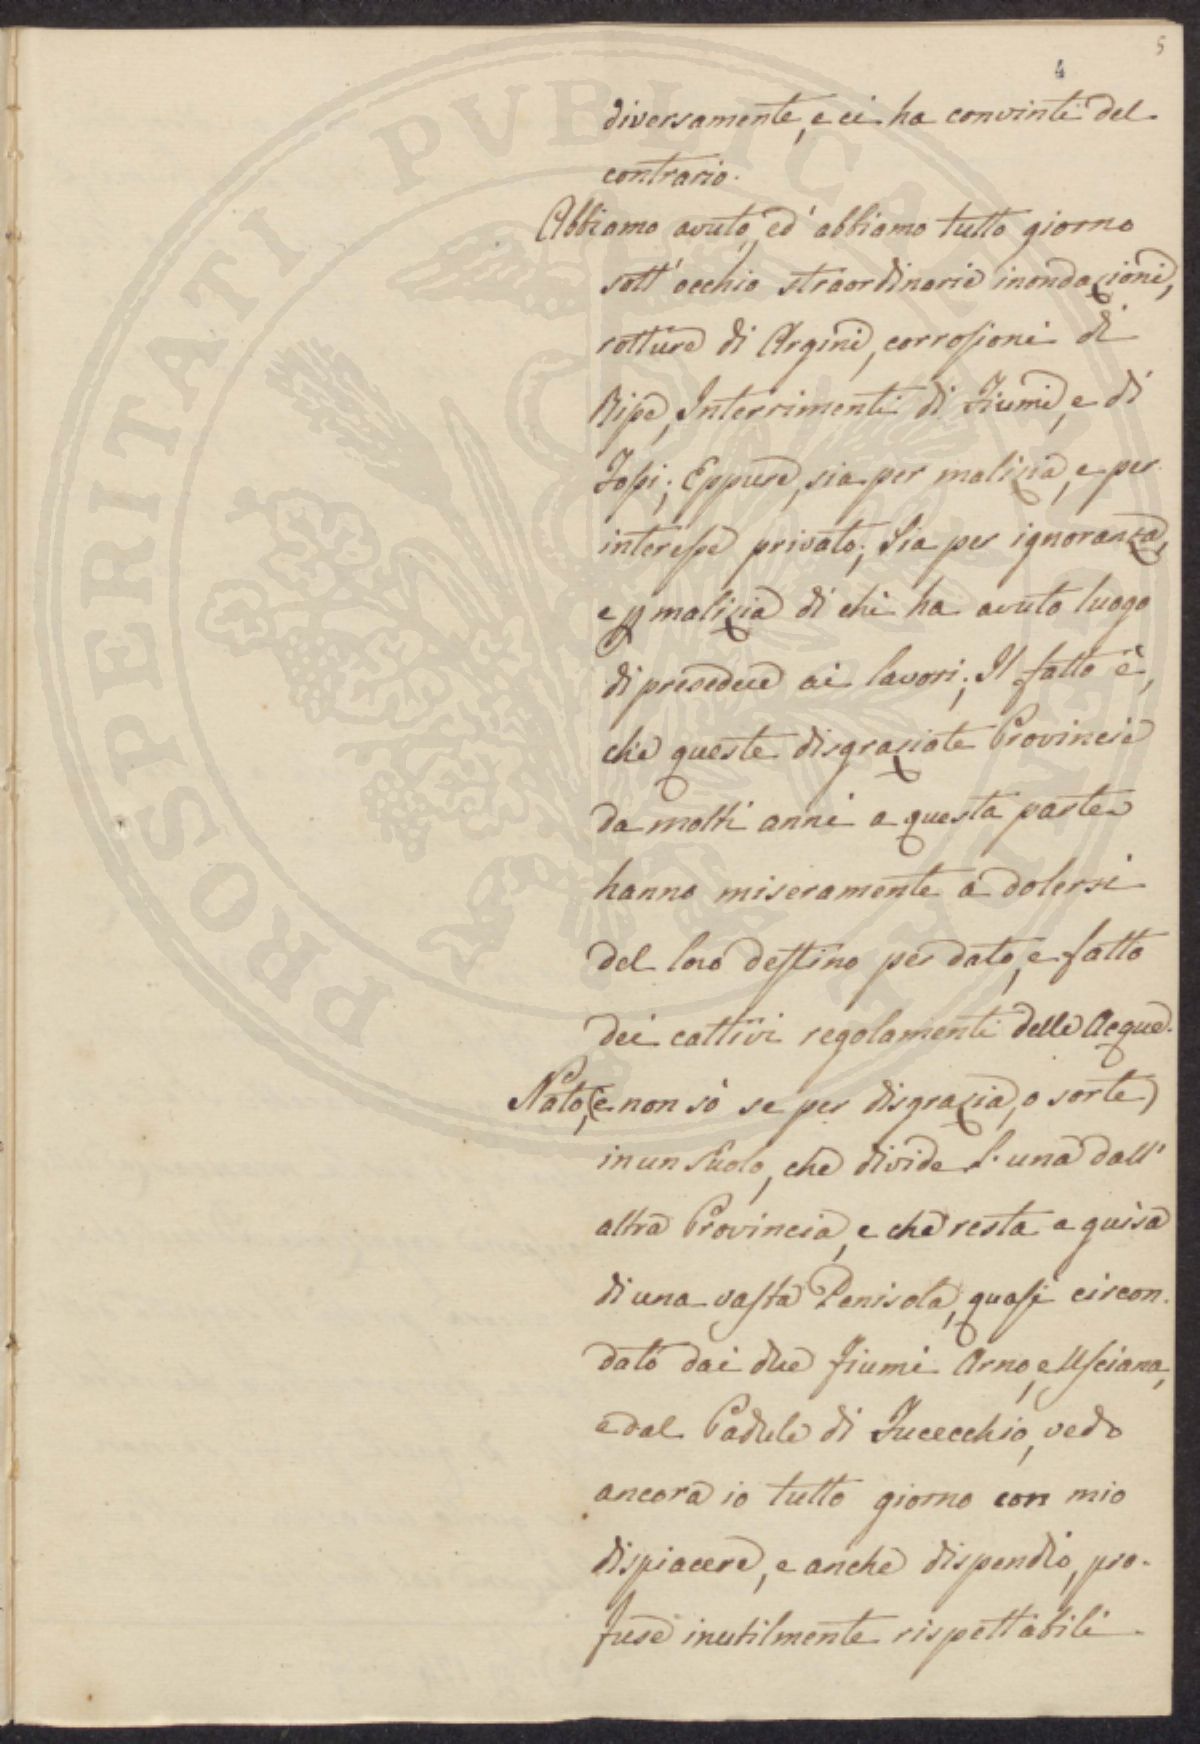 5
4
diversamente, e ci ha convinti del
contrario.
Abbiamo avuto, ed' abbiamo tutto giorno
sott' occhio straordinarie inondazioni,
rotture di Argini, corrosioni di
Ripe, Interrimenti di Fiumi, e di
Fossi; Eppure, sia per malizia, e per
interesse privato; Sia per ignoranza,
e p malizia di chi ha avuto luogo
di presedere ai lavori; Il fatto è,
che queste disgraziate Provincie
da molti anni a questa parte
hanno miseramente a dolersi
del loro destino per dato, e fatto
dei cattivi regolamenti delle Acque.
Nato, (e non sò se per disgrazia, o sorte)
in un Suolo, che divide l'una dall'
altra Provincia, e che resta a guisa
di una vasta Penisola, quasi circon-
dato dai due fiumi Arno, e Usciana,
e dal Padule di Fucecchio, vedo
ancora io tutto giorno con mio
dispiacere, e anche dispendio, pro-
fuse inutilmente rispettabili
PROSPERITATI PVBLICAE